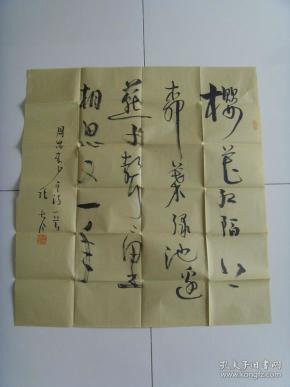 樱花红陌上
柳叶绿池边
燕子声声里
相思又一年
周恩来少年诗一首
孔夫子旧书网